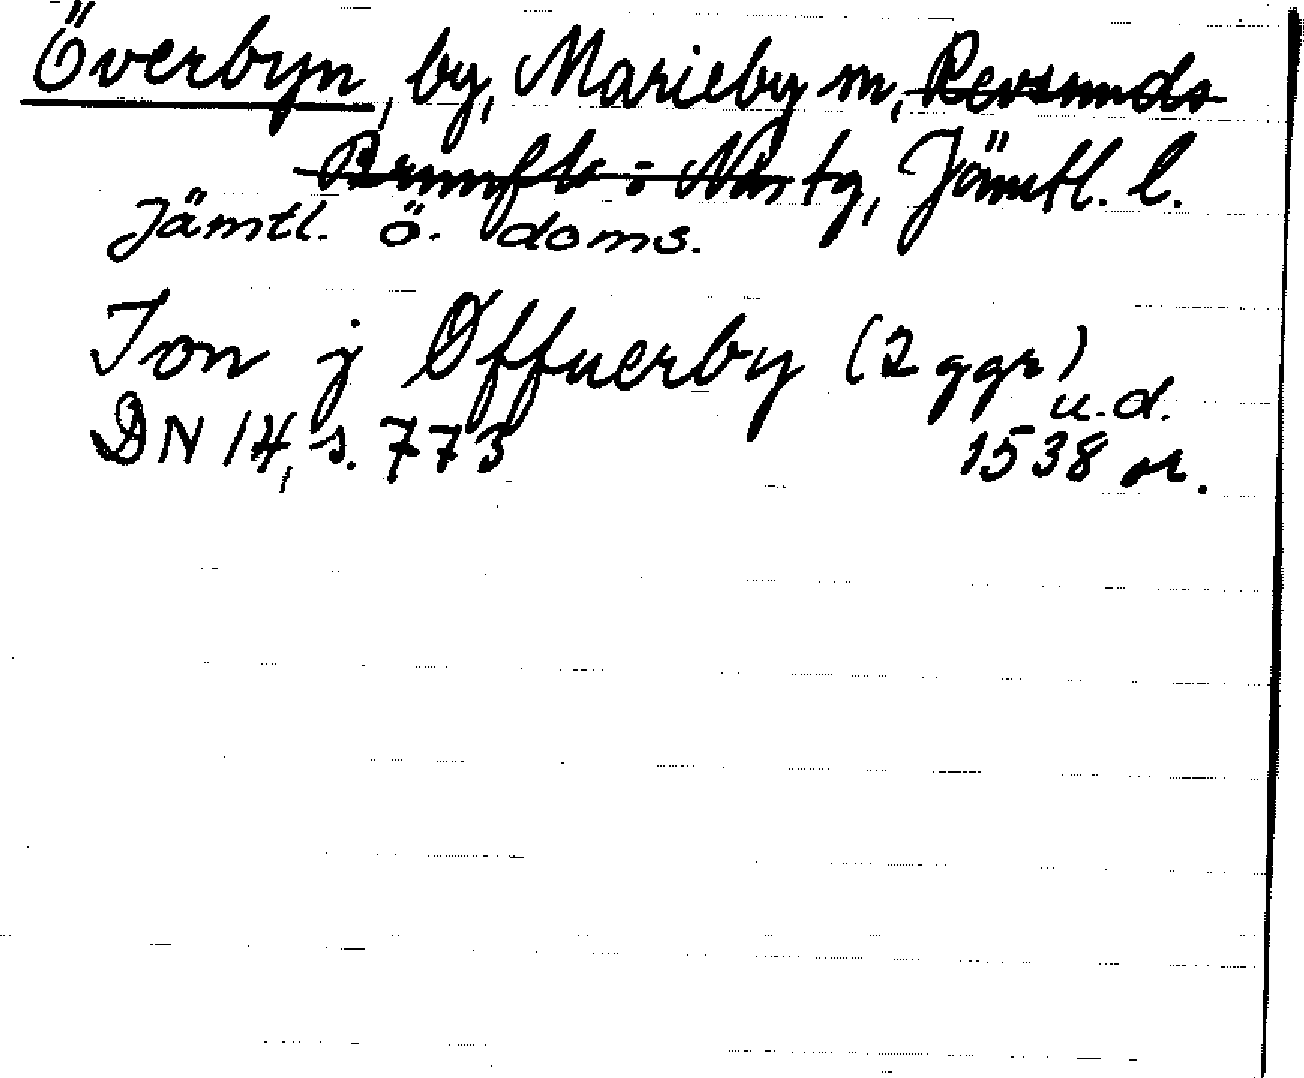 Överbyn, by, Marieby sn, Revsunds
Brunflo i Näs tg, Jämtl. l.
Jämtl. ö. doms.
Jon j Øffuerby (2 ggr)
u.d.
DN 14, s. 773 1538 or.